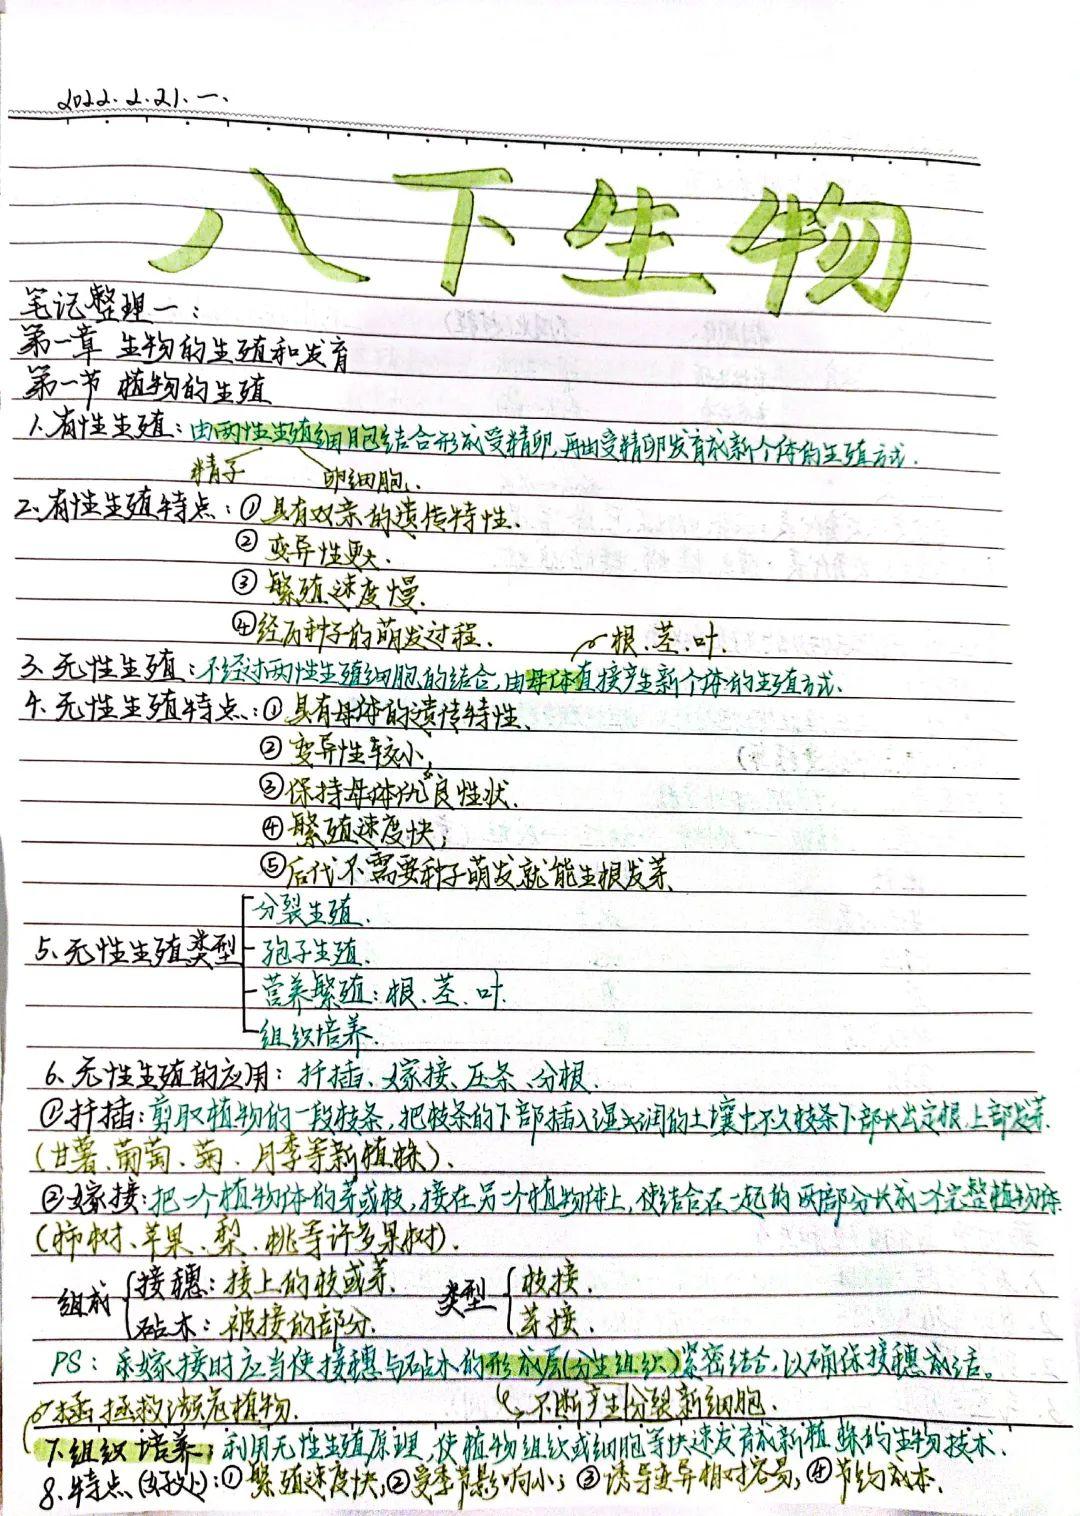 2022.2.21.一.
八下生物
笔记整理一：
第一章 生物的生殖和发育
第一节 植物的生殖
1.有性生殖：由两性生殖细胞结合形成受精卵，再由受精卵发育成新个体的生殖方式.
精子 卵细胞.
2.有性生殖特点：①具有双亲的遗传特性.
②变异性更大.
③繁殖速度慢.
④经历种子的萌发过程.
根.茎.叶.
3.无性生殖：不经过两性生殖细胞的结合，由母体直接产生新个体的生殖方式.
4.无性生殖特点：①具有母体的遗传特性.
②变异性较小，
③保持母体优良性状.
④繁殖速度快；
⑤后代不需要种子萌发就能生根发芽
5.无性生殖类型
分裂生殖.
孢子生殖.
营养繁殖：根、茎、叶.
组织培养.
6、无性生殖的应用：扦插、嫁接、压条、分根.
①扦插：剪取植物的一段枝条，把枝条的下部插入湿润的土壤中不久枝条下部长出定根，上部发芽.
(甘薯、葡萄、菊、月季等新植株).
②嫁接：把一个植物体的芽或枝，接在另一个植物体上，使结合在一起的两部分长成一个完整植物体
(柿树、苹果、梨、桃等许多果树).
组成 接穗：接上的枝或芽. 类型 枝接.
砧木：被接的部分. 芽接.
PS：嫁接时应当使接穗与砧木的形成层(分生组织)紧密结合，以确保接穗成活。
拯救濒危植物. 不断产生分裂新细胞.
7.组织培养：利用无性生殖原理，使植物组织或细胞等快速发育成新植株的生物技术.
8.特点(好处)：①繁殖速度快；②受季节影响小；③诱导变异相对容易；④节约成本.